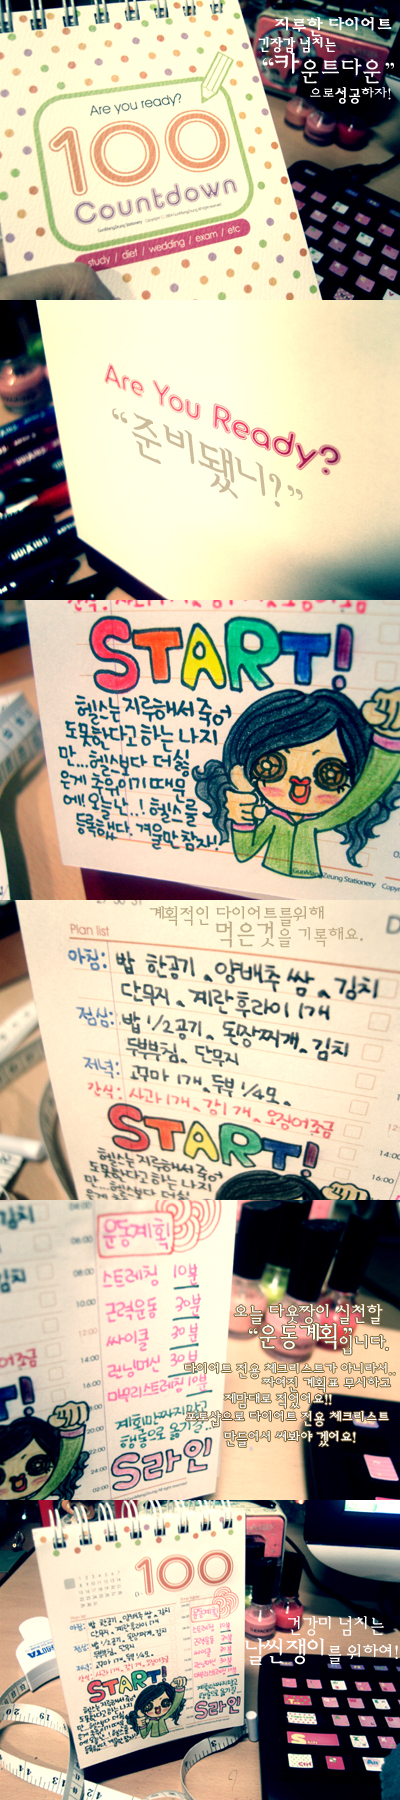 지루한 다이어트
긴장감 넘치는
“카운트다운”
으로성공하자!
Are you ready?
100
Countdown
study / diet / wedding / exam / etc
Are You Ready?
“준비됐니?”
START!
헬스는 지루해서 죽어
도 못한다고 하는 나지
만...헬스보다 더 싫
은게 추위이기 때문
에! 오늘난..! 헬스를
등록했다. 겨울만 참자!
GunMangZeung Stationery
계획적인 다이어트를위해
먹은것을 기록해요.
Plan list
아침: 밥 한공기, 양배추 쌈, 김치
단무지, 계란후라이 1개
점심: 밥 1/2공기, 된장찌개, 김치
두부부침, 단무지
저녁: 고구마 1개, 두부 1/4모,
간식: 사과 1개, 감 1개, 오징어조금
START!
헬스는 지루해서 죽어
도 못한다고 하는 나지
만...헬스보다 더 싫
운동계획
스트레칭 10분
근력운동 30분
싸이클 30분
런닝머신 30분
마무리스트레칭 10분
계획만짜지말고
행동으로 옮기길..
S라인
오늘 다욧짱이 실천할
“운동계획”
입니다.
다이어트 전용 체크리스트가 아니라서..
짜여진 계획표 무시하고
제맘대로 적었어요!!
포토샵으로 다이어트 전용 체크리스트
만들어서 써봐야 겠어요!
100
운동계획
START!
S라인
건강미 넘치는
날씬쟁이를 위하여!